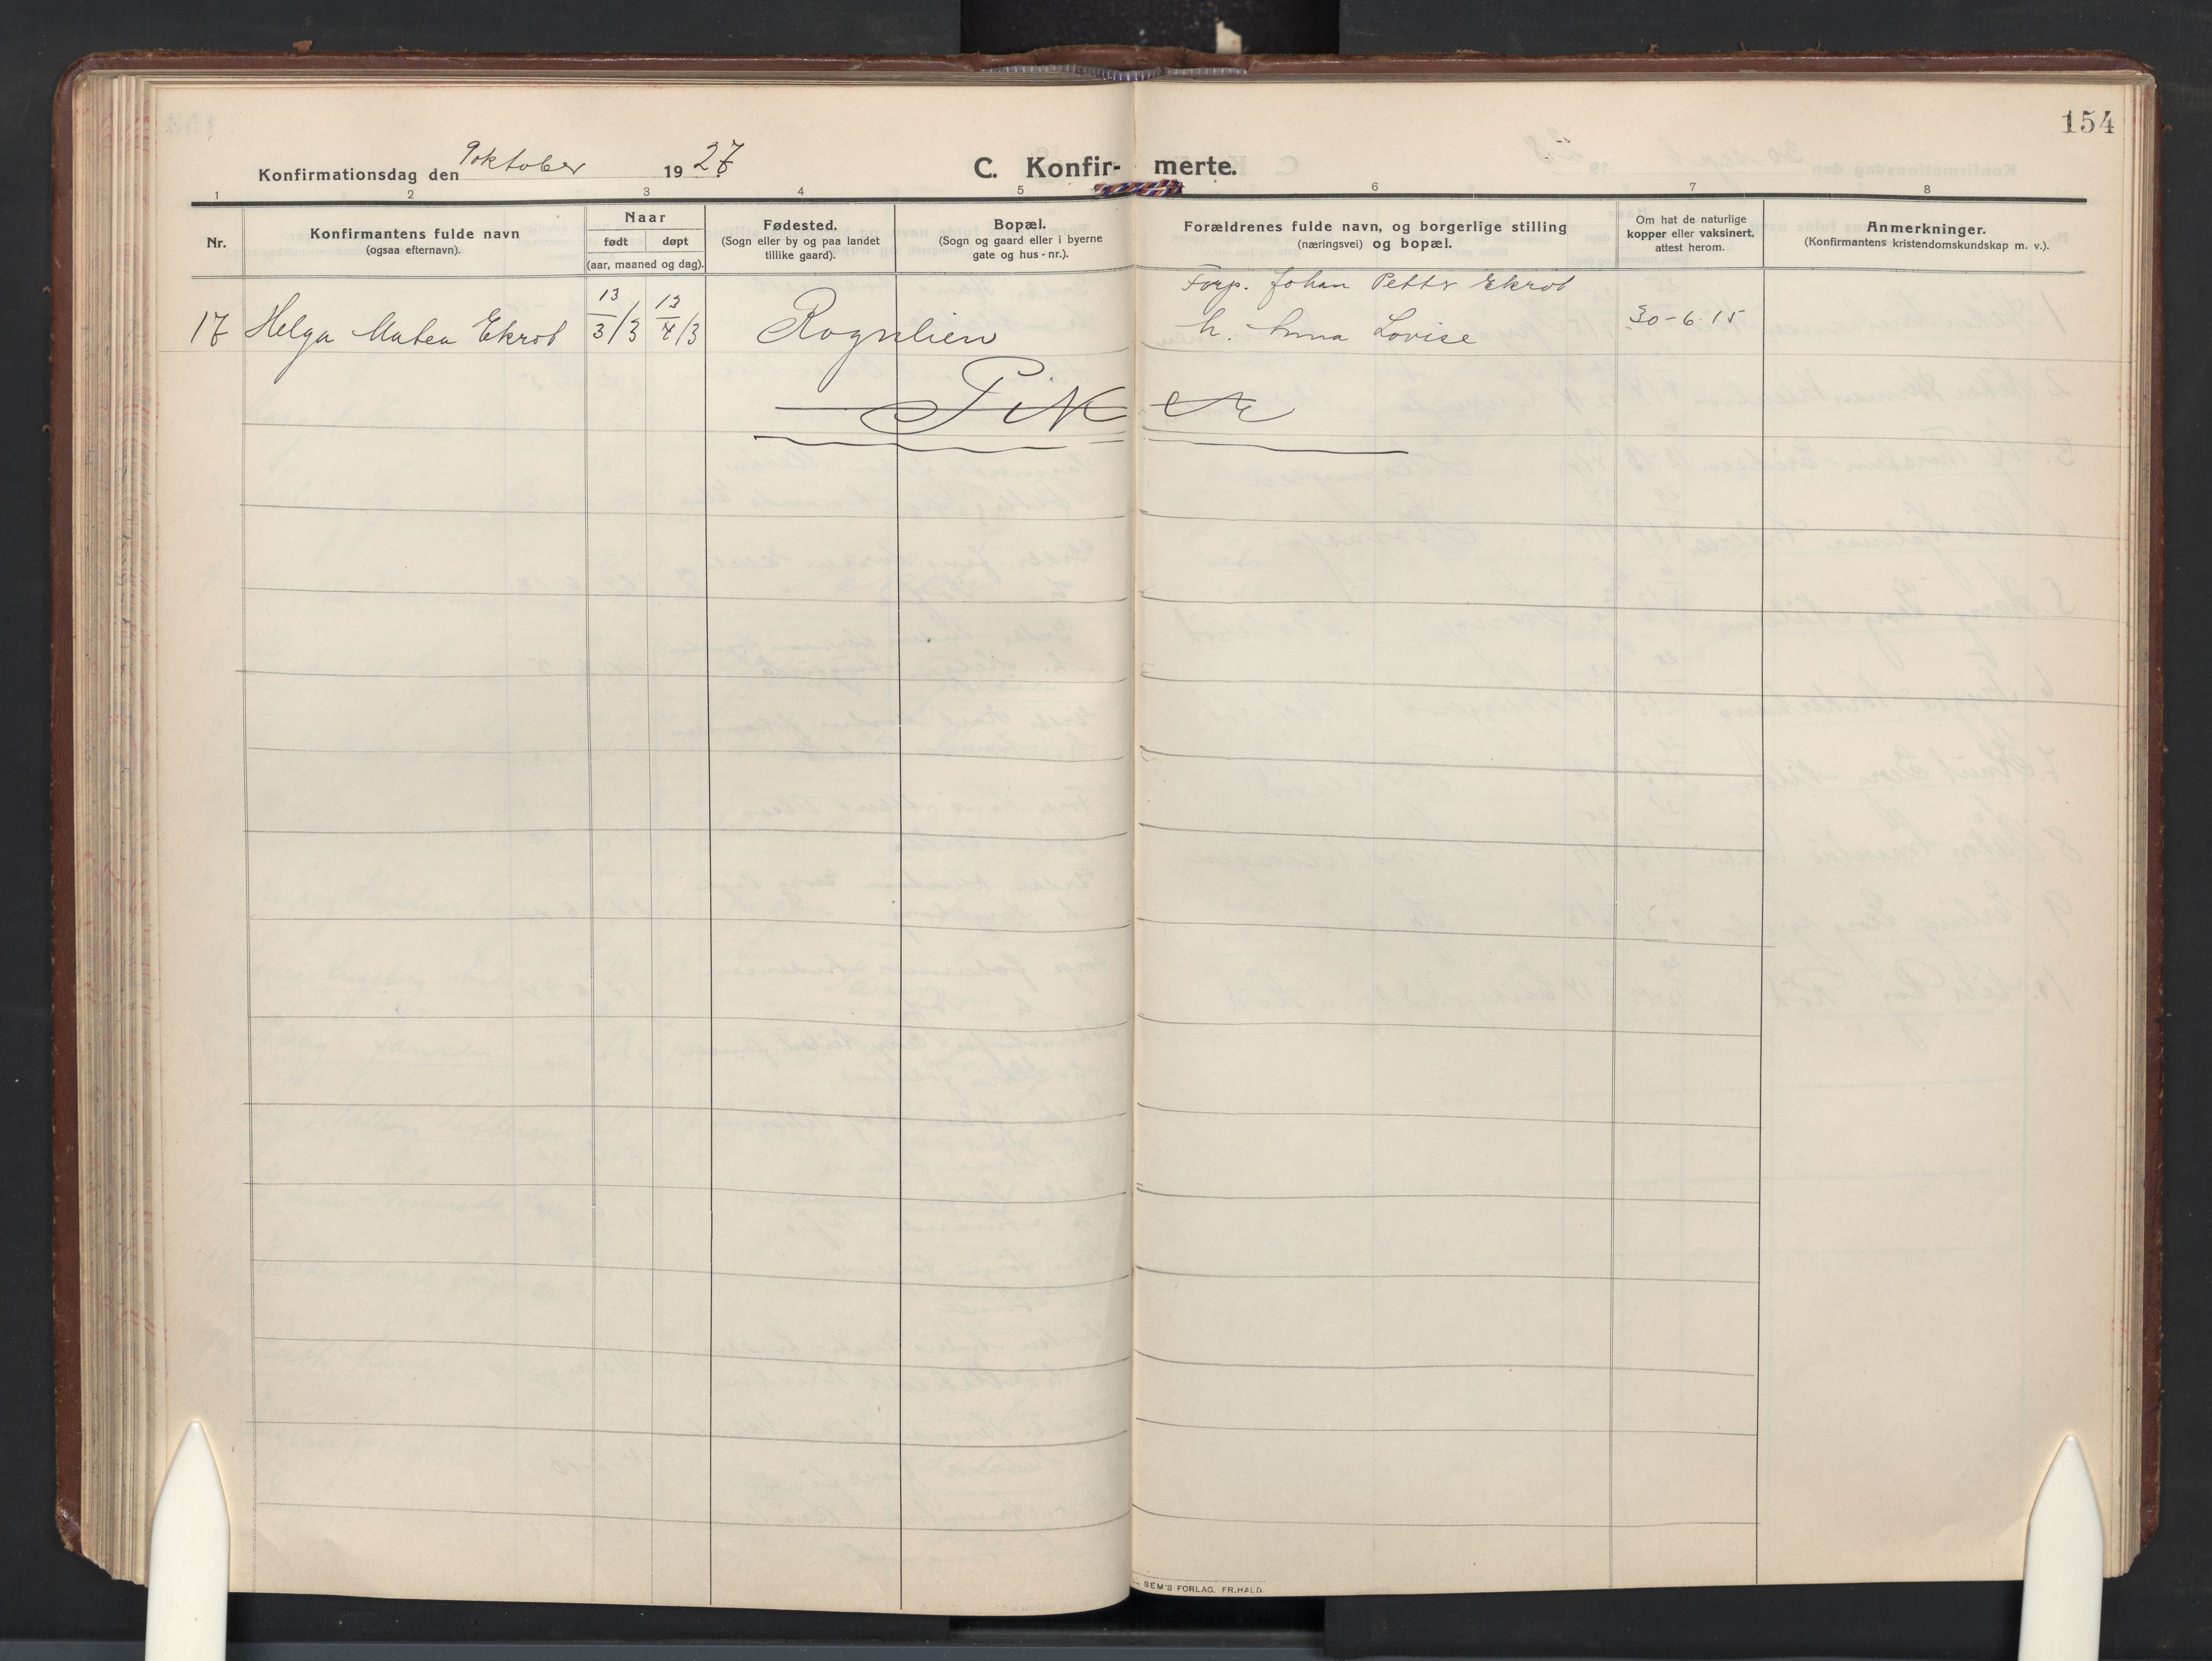 154
Konfirmationsdag den 9 oktober 1927
C. Konfirmerte.
1 2 3 4 5 6 7 8
Nr.
Konfirmantens fulde navn
(ogsaa efternavn).
Naar
født døpt
(aar, maaned og dag).
Fødested.
(Sogn eller by og paa landet
tillike gaard).
Bopæl.
(Sogn og gaard eller i byerne
gate og hus-nr.).
Forældrenes fulde navn, og borgerlige stilling
(næringsvei) og bopæl.
Om hat de naturlige
kopper eller vaksinert,
attest herom.
Anmerkninger.
(Konfirmantens kristendomskundskap m. v.).
Forp. Johan Petter Ekrot
17 Helga Matea Ekrot 13/3/13 13/4/13 Rognlien h. Anna Lovise 30-6-15
Piker
SEM'S FORLAG. FR. HALD.